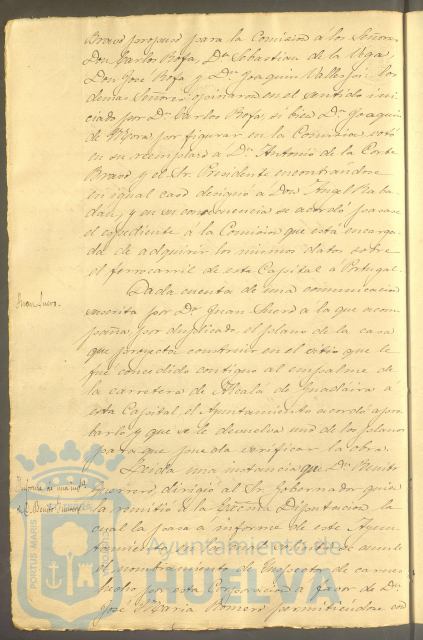 Bravo propuso para la Comision á los Señores
Don Carlos Rofa, Dn Sebastian de la Vega,
Don José Rofa y Dn Joaquin Vallejo: los
demas Señores opinaron en el sentido ini-
ciado por Dn Carlos Rofa, si bien Dn Joaquin
de Mora por figurar en la Comision, votó
en su reemplazo á Dn Antonio de la Corte
Bravo y el Sr. Presidente encontrándose
en igual caso designó a Don Angel Raba-
dán, y en su consecuencia se acordó pasase
el espediente a la Comision que está encarga-
da de adquirir los mismos datos sobre
el ferrocarril de esta Capital á Portugal.
Juan Suero.
Dada cuenta de una comunicacion
suscrita por Dn Juan Suero á la que acom-
paña, por duplicado, el plano de la casa
que proyecta construir en el sitio que le
fué concedido contiguo al empalme de
la carretera de Alcalá de Guadaira á
esta Capital, el Ayuntamiento acordó apro-
barlo y que se le devuelva uno de los planos
para que pueda verificar la obra.
Informe de una inst.ª
de D. Benito
Leida una instancia que Dn Benito
dirigió al Sr. Gobernador quien
la remitió a la Excma Diputacion, la
cual la pasa a informe de este Ayun-
tamiento, en
el nombramiento de Inspector de carnes
hecho por esta Corporacion á favor de Dn
José Maria Romero permitiendose con
Ayuntamiento de
HUELVA
PORTUS MARIS